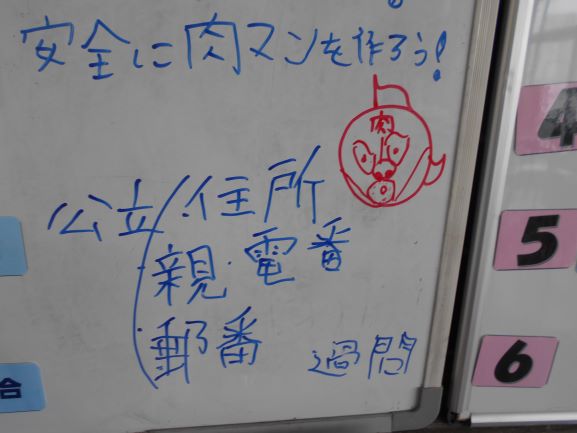 安全に肉マンを作ろう!
肉
公立
・住所
親・電番
・郵番
過問
合
4
5
6